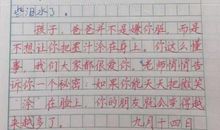 些泪水了。
孩子，爸爸并不是嫌你脏，而是
不想让你把墨汁涂在身上。你这么懂
事，我们大家都很爱你。老师悄悄告
诉你一个秘密：如果你能天天把微笑
涂在脸上，你的朋友就会变得越
来越多了。 九月十四日